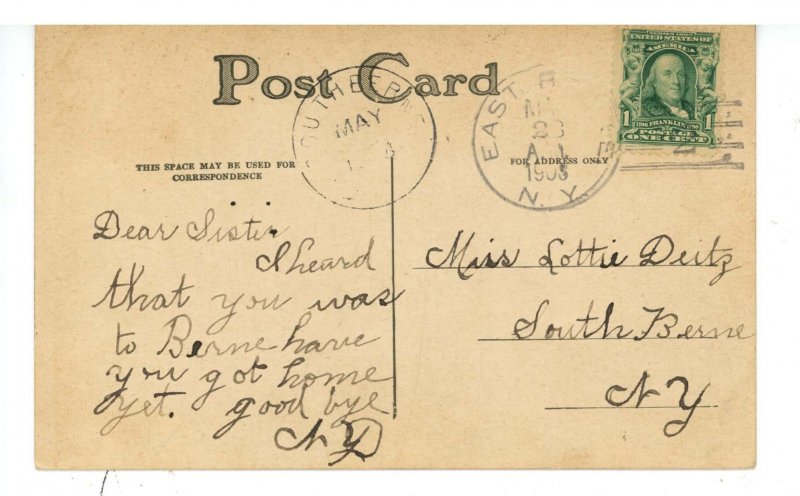 Post Card
THIS SPACE MAY BE USED FOR
CORRESPONDENCE
FOR ADDRESS ONLY
MAY
EAST
28
1908
N.Y.
UNITED STATES OF
AMERICA
1 FRANKLIN 1
POSTAGE
ONE CENT
Dear Sister
I heard
that you was
to Berne have
you got home
yet. good bye
Miss Lottie Deitz
South Berne
NY